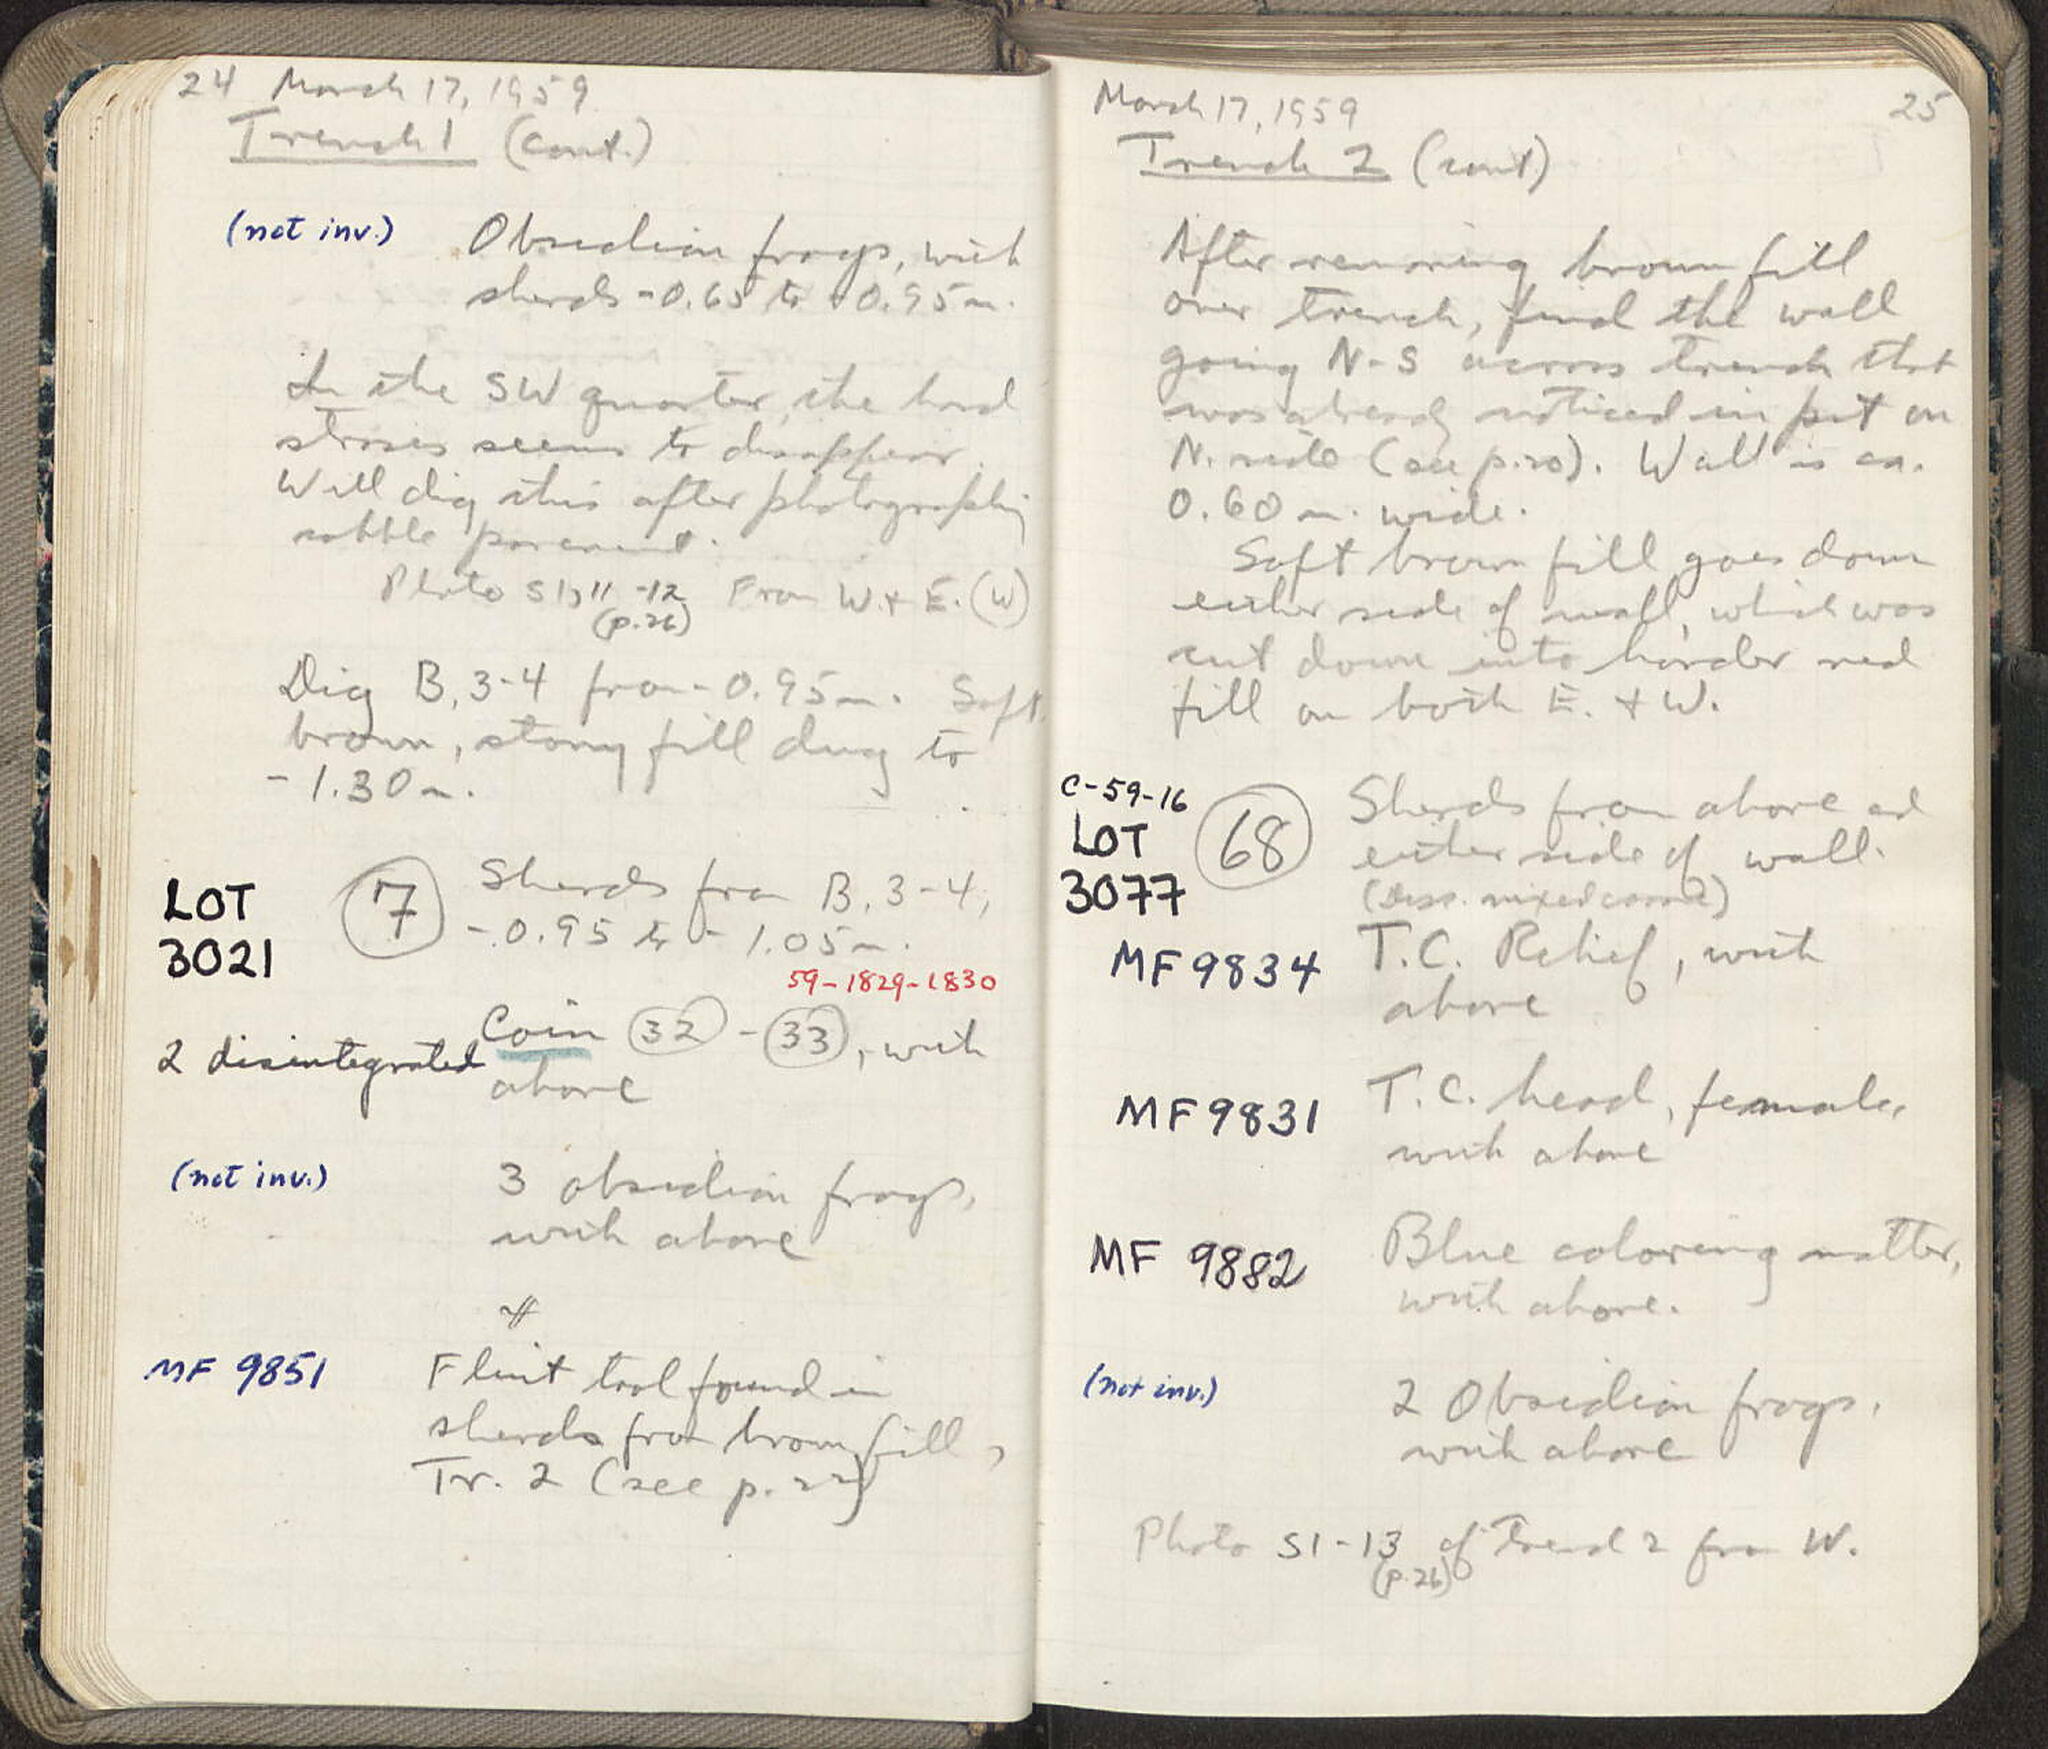 24 March 17, 1959
Trench 1 (cont.)
(not inv.) Obsidian frags, with
sherds -0.65 to -0.95m.
In the SW quarter, the hard
stroses seems to disappear.
Will dig this after photographing
cobble pavement.
Photo S1,11-12 From W. + E. (W)
(p.26)
Dig B, 3-4 from -0.95m. Soft
brown, stony fill dug to
-1.30m.
LOT
3021
7 Sherds from B, 3-4,
-0.95 to -1.05m.
59-1829-1830
2 disintegrated Coin 32 - 33, with
above
(not inv.) 3 obsidian frags,
with above
MF 9851 Flint tool found in
sherds from brown fill,
Tr. 2 (see p. 22)
March 17, 1959 25
Trench 2 (cont)
After removing brown fill
over trench, find the wall
going N-S across trench that
was already noticed in pit on
N. side (see p.20). Wall is ca.
0.60m. wide.
Soft brown fill goes down
either side of wall, which was
cut down into harder red
fill on both E. + W.
C-59-16
LOT
3077
68 Sherds from above and
either side of wall.
MF 9834 T.C. Relief, with
above
MF 9831 T.C. head, female,
with above
MF 9882 Blue coloring matter,
with above.
(not inv.) 2 Obsidian frags,
with above
Photo S1-13 of Trench 2 from W.
(p.26)